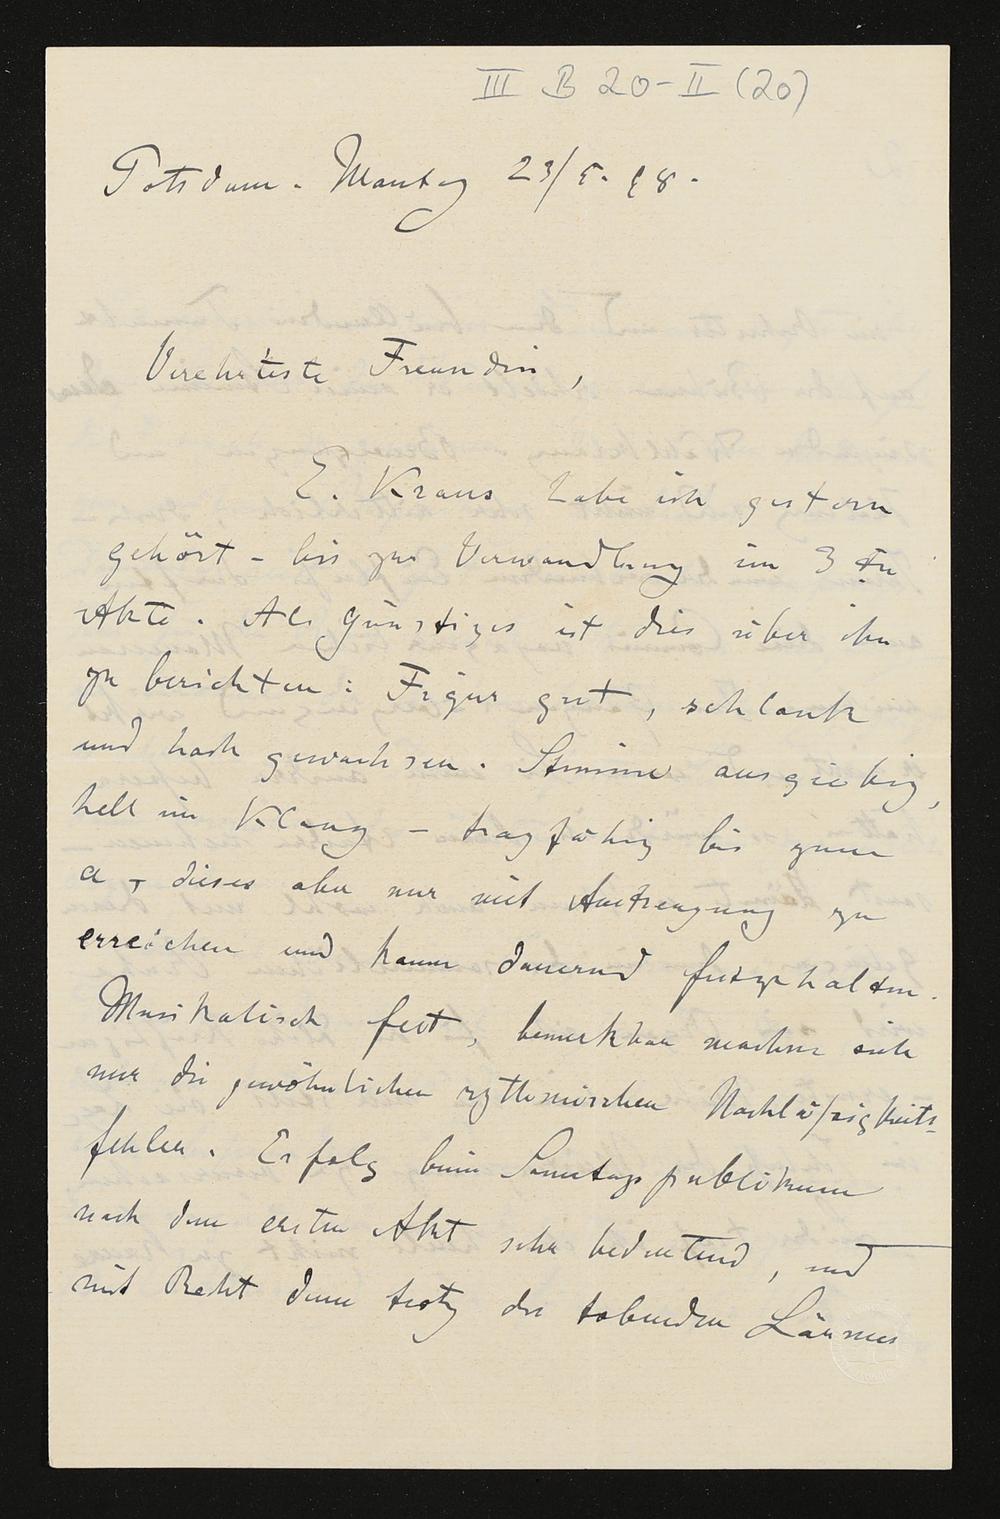 III B 20-II (20)
Potsdam. Montag 23/5. 98.
Verehrteste Freundin,
E. Kraus habe ich gestern
gehört - bis zur Verwandlung im 3ten
Akte. Als Günstiges ist dies über ihn
zu berichten: Figur gut, schlank
und hoch gewachsen. Stimme ausgiebig,
hell im Klang - tragfähig bis zum
a, dieses aber nur mit Anstrengung zu
erreichen und kaum dauernd festzuhalten.
Musikalisch fest, bemerkbar machen sich
nur die gewöhnlichen rythmischen Nachläßigkeits-
fehler. Erfolg beim Sonntagspublikum
nach dem ersten Akt sehr bedeutend, und
mit Recht denn trotz des tobenden Lärmes